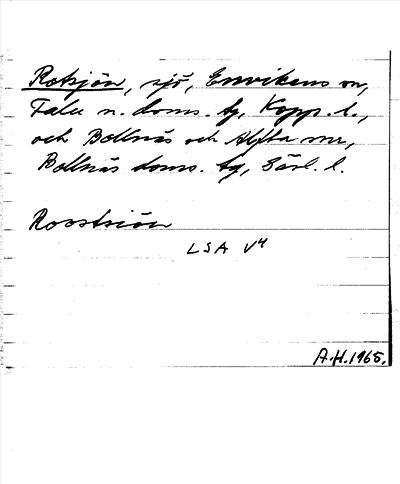 Rotsjön, sjö, Envikens sn,
Falu n. doms. tg, Kopp. l.,
och Bollnäs och Alfta snr,
Bollnäs doms. tg, Gävl. l.
Rosstsiön
LSA V4
A.H. 1965.